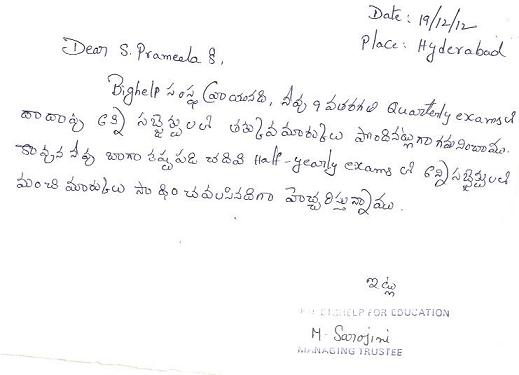 Date: 19/12/12
Place: Hyderabad
Dear S. Prameela k,
Bighelp సంస్థ వ్రాయునది, నీవు 9 వతరగతి Quarterly exams లో
దాదాపు అన్ని సబ్జెక్టులలో తక్కువమార్కులు పొందినట్లుగా గమనించాము.
కావున నీవు బాగా కష్టపడి చదివి Half-yearly exams లో అన్ని సబ్జెక్టులలో
మంచి మార్కులు సాధించవలసినదిగా హెచ్చరిస్తున్నాము.
ఇట్లు
BIGHELP FOR EDUCATION
M. Sarojini
MANAGING TRUSTEE